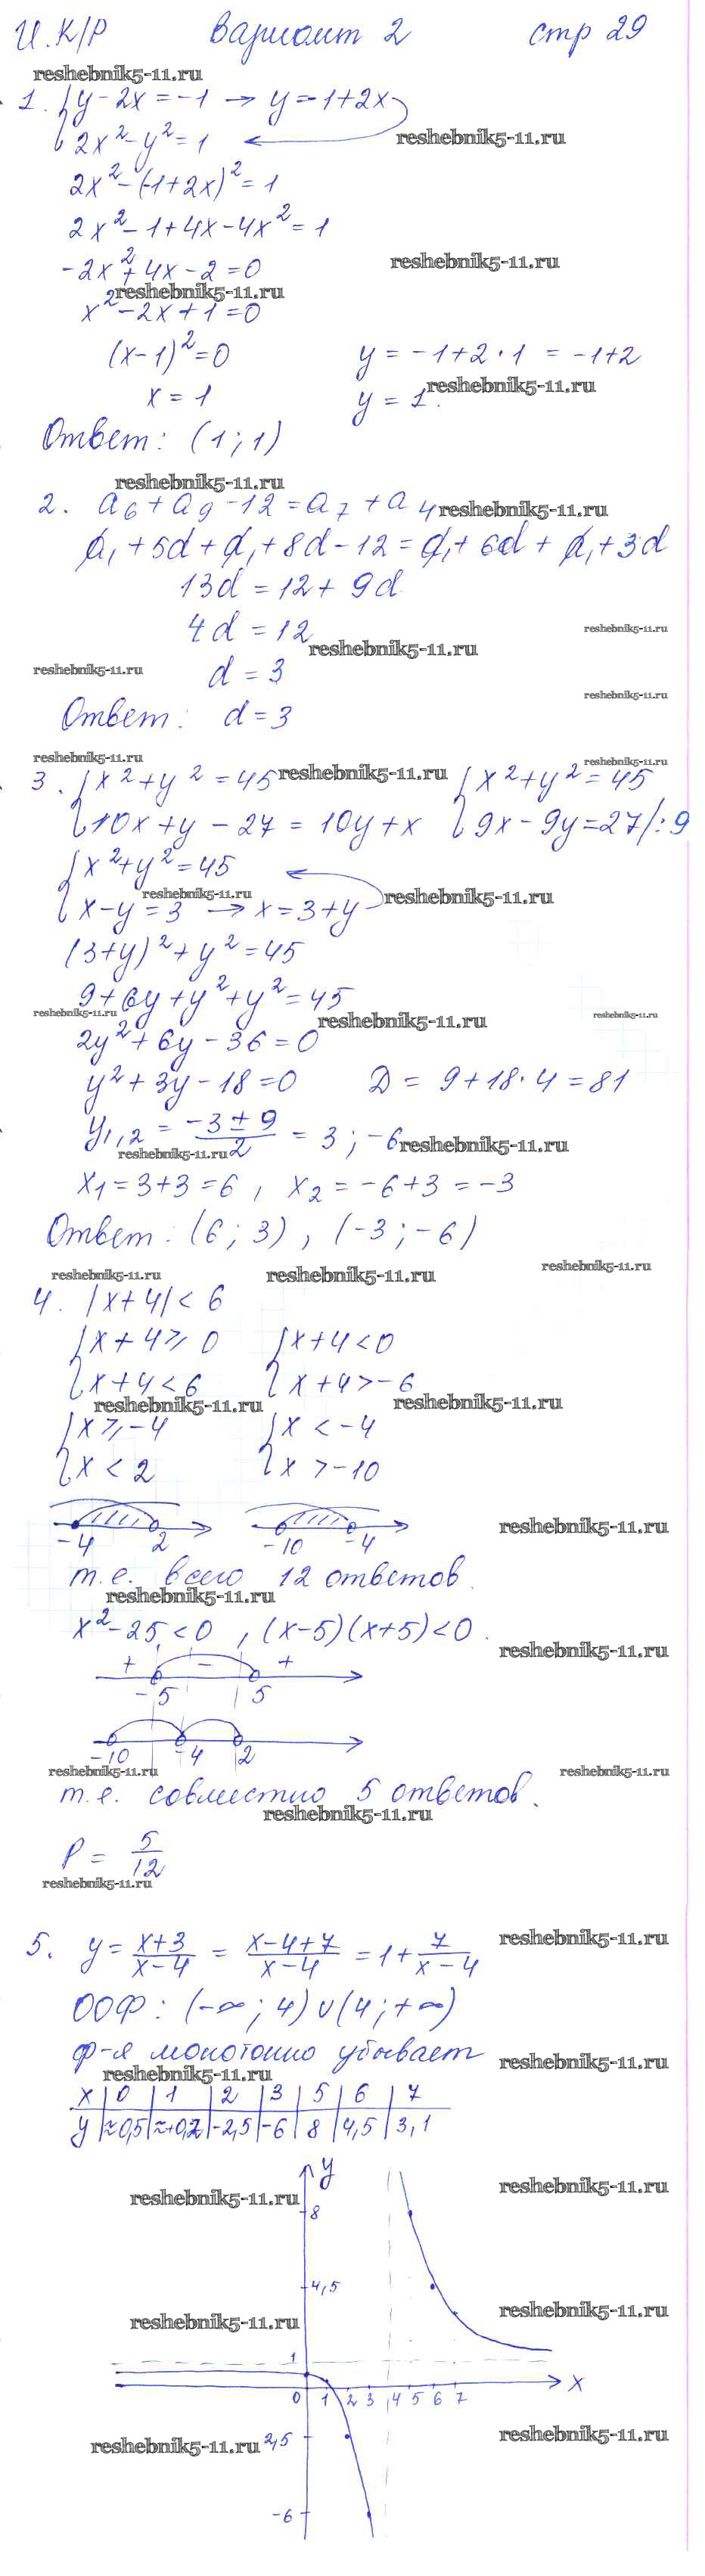 И.К/Р Вариант 2 стр 29
reshebnik5-11.ru
1. { y - 2x = -1 → y = -1 + 2x
2x² - y² = 1 ← reshebnik5-11.ru
2x² - (-1+2x)² = 1
2x² - 1 + 4x - 4x² = 1
-2x² + 4x - 2 = 0 reshebnik5-11.ru
reshebnik5-11.ru
x² - 2x + 1 = 0
(x-1)² = 0 y = -1 + 2·1 = -1+2
x = 1 y = 1. reshebnik5-11.ru
Ответ: (1; 1)
reshebnik5-11.ru
2. a₆ + a₉ - 12 = a₇ + a₄ reshebnik5-11.ru
a₁ + 5d + a₁ + 8d - 12 = a₁ + 6d + a₁ + 3d
13d = 12 + 9d
4d = 12 reshebnik5-11.ru
reshebnik5-11.ru
reshebnik5-11.ru d = 3
reshebnik5-11.ru
Ответ: d = 3
reshebnik5-11.ru reshebnik5-11.ru
3. { x² + y² = 45 reshebnik5-11.ru { x² + y² = 45
10x + y - 27 = 10y + x { 9x - 9y = 27 |:9
{ x² + y² = 45 ←
reshebnik5-11.ru reshebnik5-11.ru
x - y = 3 → x = 3 + y
(3+y)² + y² = 45
9 + 6y + y² + y² = 45
reshebnik5-11.ru reshebnik5-11.ru reshebnik5-11.ru
2y² + 6y - 36 = 0
y² + 3y - 18 = 0 D = 9 + 18·4 = 81
y₁,₂ = (-3 ± 9)/2 = 3; -6 reshebnik5-11.ru
reshebnik5-11.ru
x₁ = 3+3 = 6, x₂ = -6+3 = -3
Ответ: (6; 3), (-3; -6)
reshebnik5-11.ru reshebnik5-11.ru reshebnik5-11.ru
4. |x+4| < 6
{ x + 4 ≥ 0 { x+4 < 0
x + 4 < 6 x + 4 > -6
reshebnik5-11.ru reshebnik5-11.ru
{ x ≥ -4 { x < -4
x < 2 x > -10
-4 2 -10 -4 reshebnik5-11.ru
т.е. всего 12 ответов.
reshebnik5-11.ru
x² - 25 < 0, (x-5)(x+5) < 0.
reshebnik5-11.ru
+ - +
-5 5
-10 -4 2
reshebnik5-11.ru reshebnik5-11.ru
т.е. совместно 5 ответов.
reshebnik5-11.ru
P = 5/12
reshebnik5-11.ru
5. y = (x+3)/(x-4) = (x-4+7)/(x-4) = 1 + 7/(x-4) reshebnik5-11.ru
ООФ: (-∞; 4) ∪ (4; +∞)
ф-я монотонно убывает reshebnik5-11.ru
reshebnik5-11.ru
x | 0 | 1 | 2 | 3 | 5 | 6 | 7
y | ≈0,5 | ≈+0,2 | -2,5 | -6 | 8 | 4,5 | 3,1
y
reshebnik5-11.ru reshebnik5-11.ru
8
4,5
reshebnik5-11.ru reshebnik5-11.ru
1
0 1 2 3 4 5 6 7 x
reshebnik5-11.ru 2,5 reshebnik5-11.ru
-6